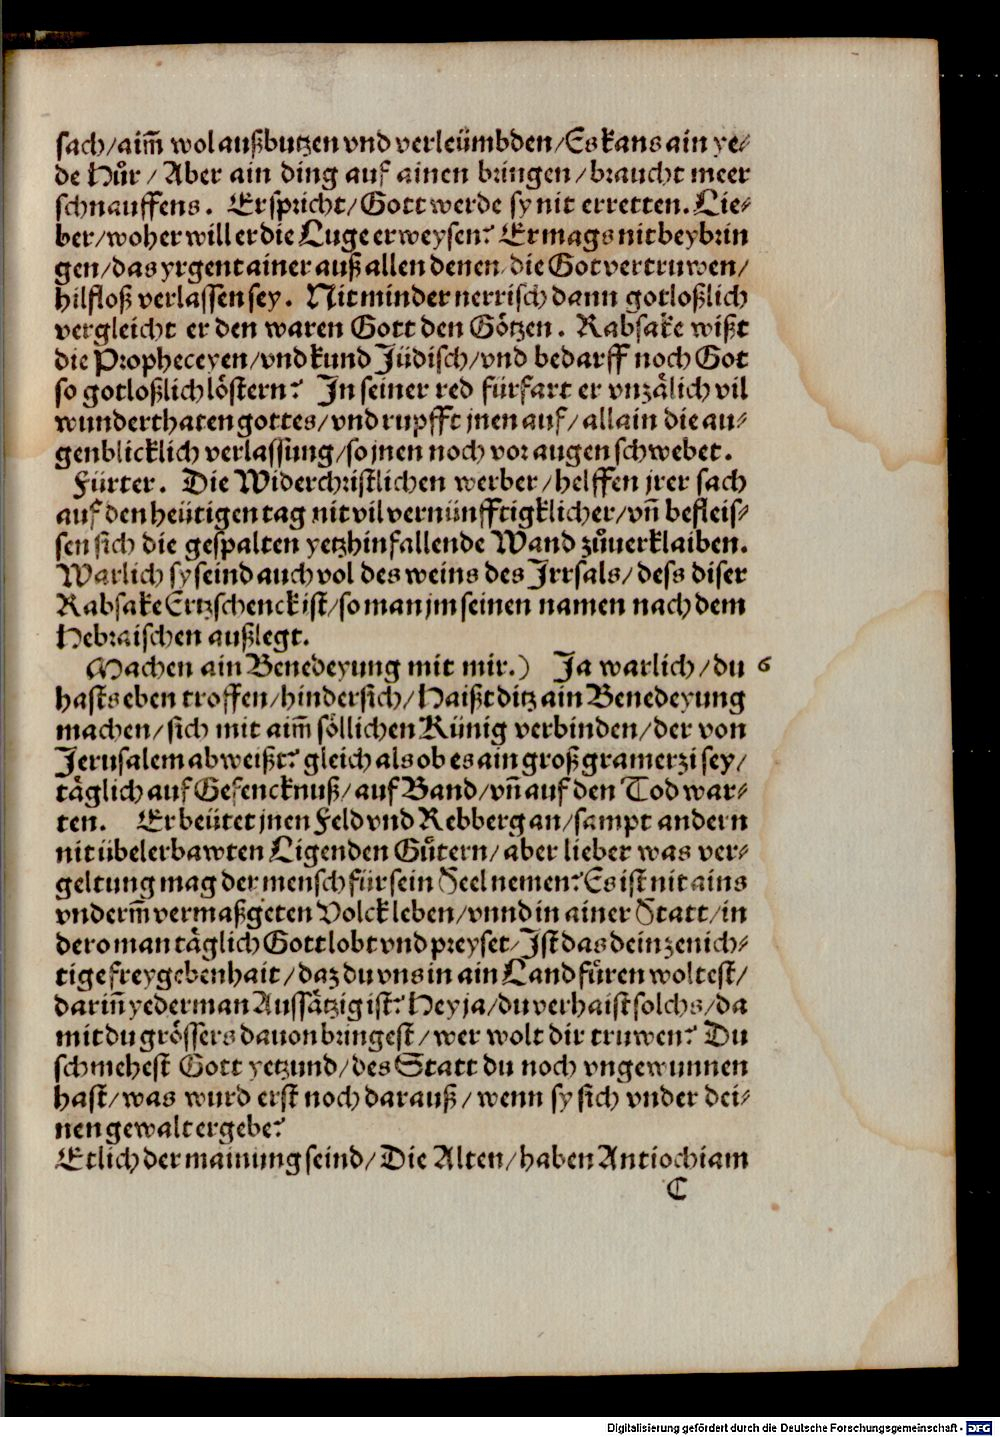 sach/aim̃ wol außbutzen vnd verleümbden/Es kans ain ye⸗
de Hůr/ Aber ain ding auf ainen bringen/braucht meer
schnauffens. Er spricht/Gott werde sy nit erretten. Lie⸗
ber/woher will er die Luge erweysen? Er mags nit beybrin
gen/das yrgent ainer auß allen denen/die Got vertruwen/
hilfloß verlassen sey. Nit minder nerrisch dann gotloßlich
vergleicht er den waren Gott den Götzen. Rabsake wißt
die Propheceyen/vnd kund Jüdisch/vnd bedarff noch Got
so gotloßlich löstern? In seiner red fürfart er vnzälich vil
wunderthaten gottes/vnd rupfft jnen auf/allain die au⸗
genblicklich verlassung/so jnen noch vor augen schwebet.
Fürter. Die Widerchristlichen werber/helffen jrer sach
auf den heütigen tag nit vil vernünfftigklicher/vñ befleis⸗
sen sich die gespalten yetz hinfallende Wand zůuerklaiben.
Warlich sy seind auch vol des weins des Irrsals/dess diser
Rabsake Ertzschenck ist/so man jm seinen namen nach dem
Hebraischen außlegt.
Machen ain Benedeyung mit mir.) Ja warlich/du 6
hasts eben troffen/hindersich/Haißt ditz ain Benedeyung
machen/sich mit aim̃ söllichen Künig verbinden/der von
Jerusalem abweißt? gleich als ob es ain groß gramerzi sey/
täglich auf Gefencknuß/auf Band/vñ auf den Tod war⸗
ten. Er beütet jnen Feld vnd Rebberg an/sampt andern
nit übel erbawten Ligenden Gůtern/aber lieber was ver⸗
geltung mag der mensch für sein Seel nemen? Es ist nit ains
vnderm̃ vermaßgeten Volck leben/vnnd in ainer Statt/in
dero man täglich Gott lobt vnd preyset/Ist das dein zenich⸗
tige freygebenhait/daz du vns in ain Land füren woltest/
dariñ yederman Aussätzig ist? Hey ja/du verhaist solchs/da
mit du grössers dauon bringest/wer wolt dir truwen? Du
schmehest Gott yetzund/des Statt du noch vngewunnen
hast/was wurd erst noch darauß/wenn sy sich vnder dei⸗
nen gewalt ergebe?
Etlich der mainung seind/Die Alten/haben Antiochiam
C
Digitalisierung gefördert durch die Deutsche Forschungsgemeinschaft - DFG